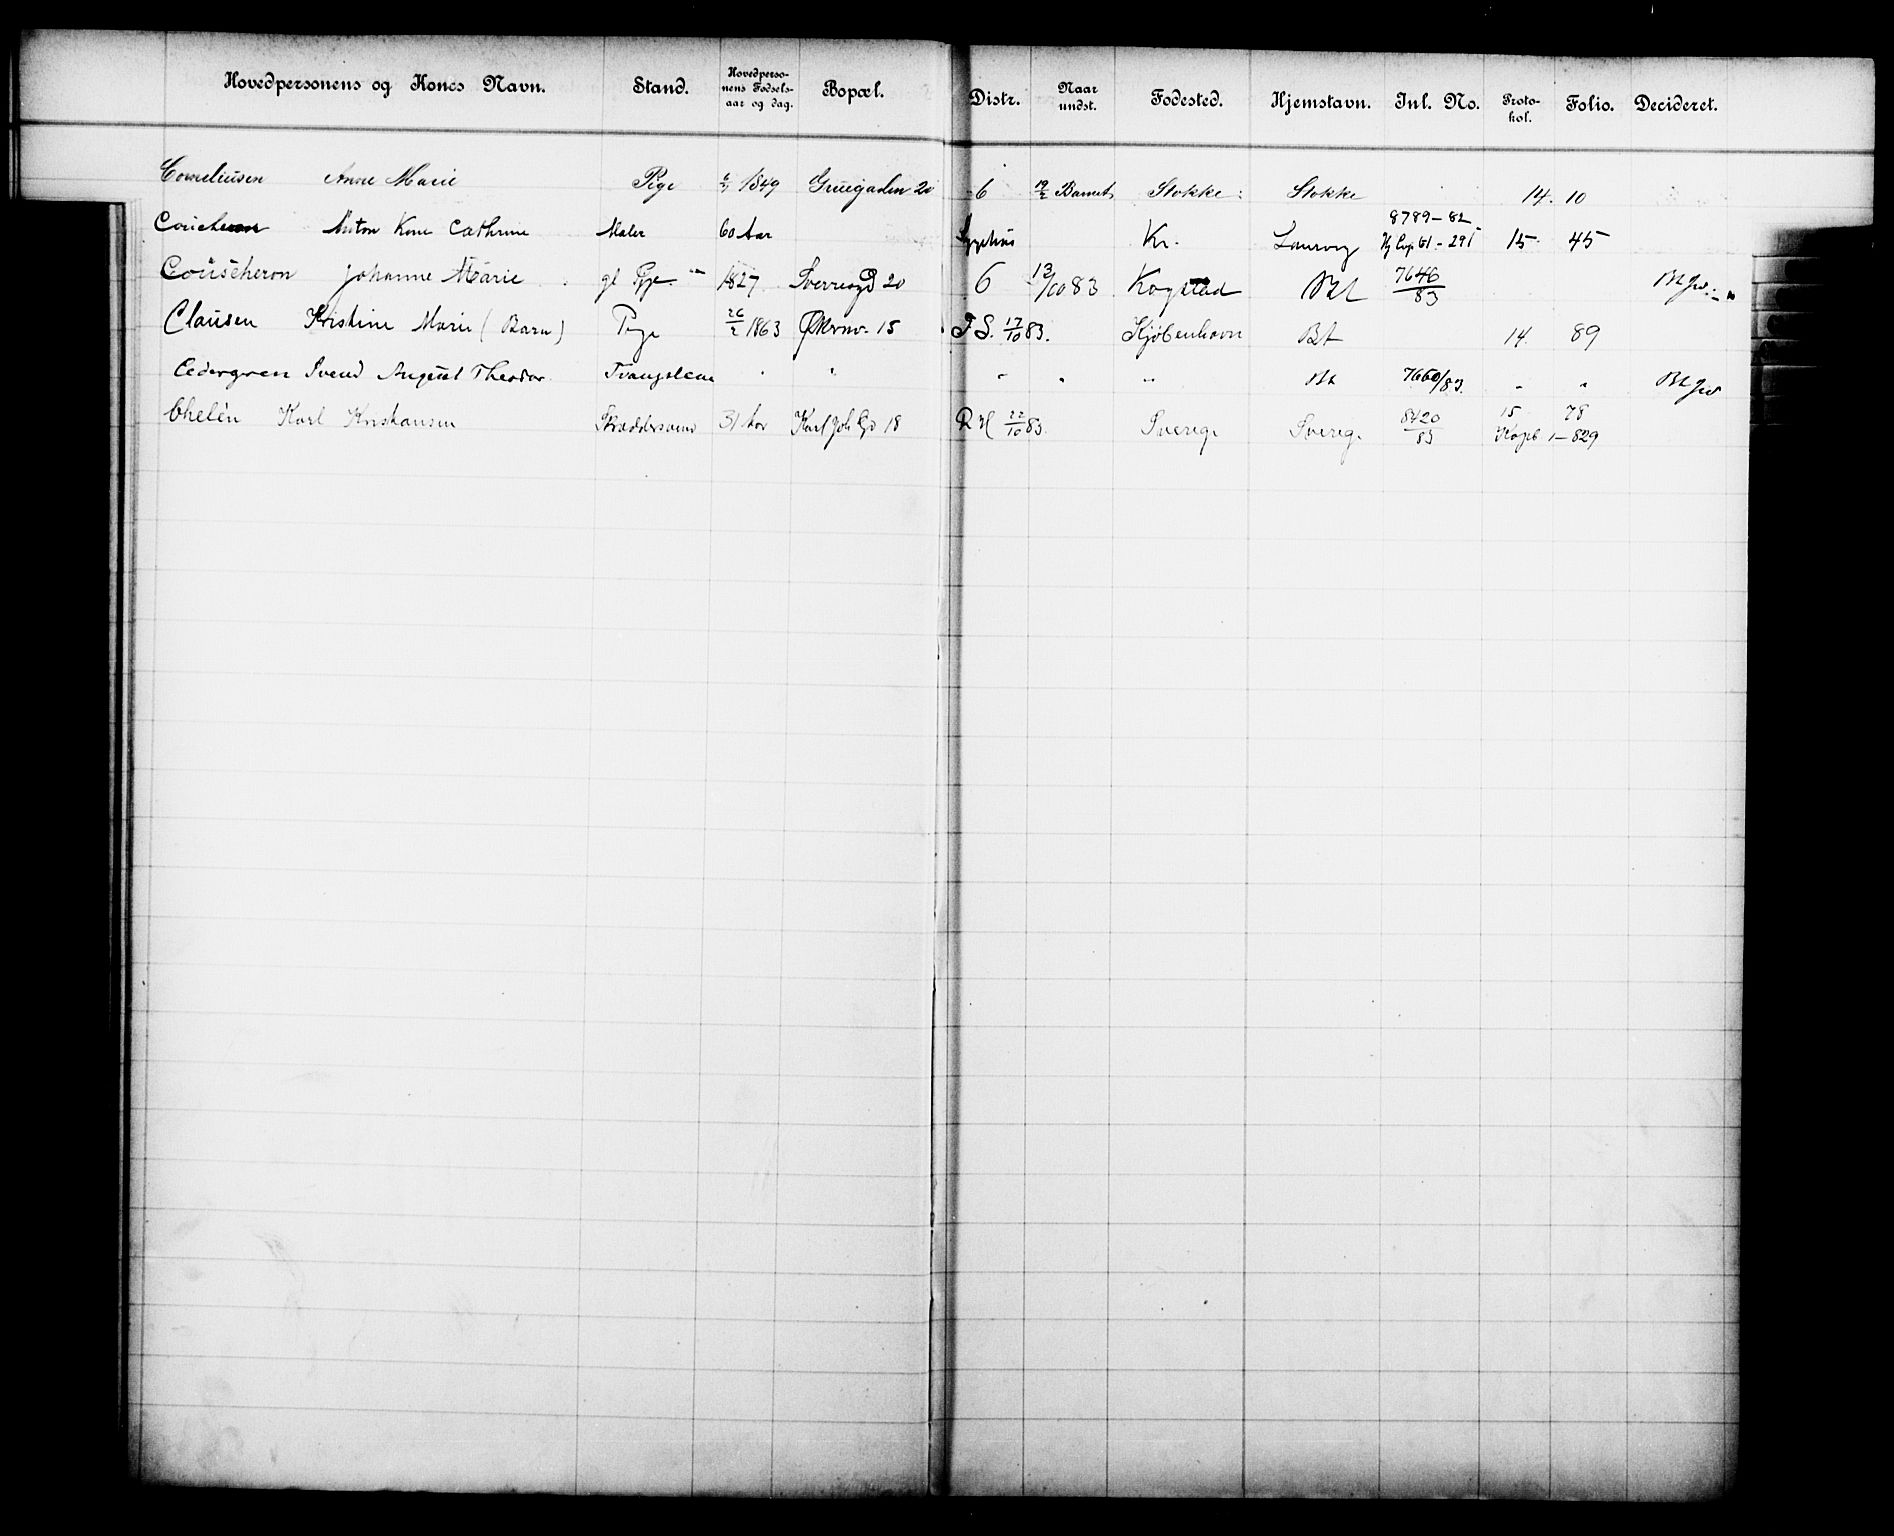 Hovedpersonens og Kones Navn. Stand. Hovedperso-nens Fødsels-aar og dag. Bopæl. Distr. Naar undst. Fødested. Hjemstavn. Inl. No. Proto-kol. Folio. Decideret.
Corneliusen Anne Marie Pige 1849 Gruegaden 20 6 Barnet Stokke Stokke 14. 10
Coucheron Anton Kone Cathrine Maler 60 Aar Sygehus Kr. Laurvig 8789-82 15 45
Coüscheron Johanne Marie gl Pige 1827 Sverresgd 20 6 13/10 83 Kogstad Bt 7646/83
Claüsen Kristine Marie (Barn) Pige 26/2 1863 15 F.S. 17/10 83. Kjøbenhavn Bt 14. 89
Cedergren Svend August Theodor Tvangslem " " " " " Bt 7660/83 " "
Chelén Karl Kristiansen Skræddersvend 31 Aar Karl Joh Gd 18 R H 22/10 83. Sverige Sverige 8420/83 15 78
Kopib 1-829